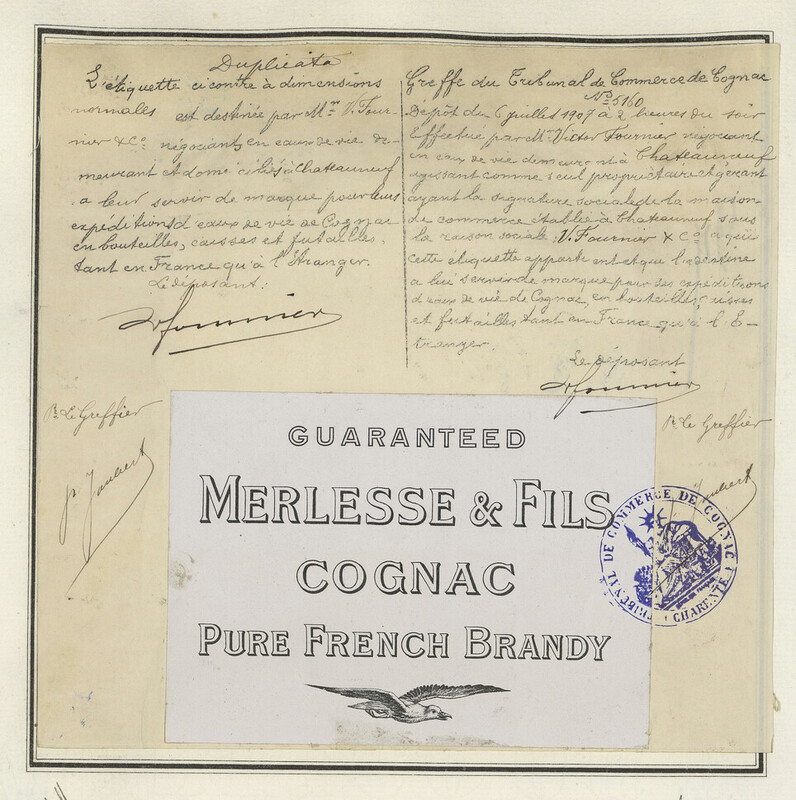 Duplicata
L'étiquette ci contre à dimensions
normales est destinée par Mr V. Four-
nier & Co négociants en eaux de vie de-
meurant et domiciliés à Chateauneuf
a leur servir de marque pour leurs
expéditions d'eaux de vie de Cognac
en bouteilles, caisses et futailles,
tant en France qu'à l'Etranger.
Le déposant:
VFournier
Greffe du Tribunal de Commerce de Cognac
No 5160
Dépôt du 6 juillet 1907 à 2 heures du soir
Effectué par Mr Victor Fournier négociant
en eaux de vie demeurant à Chateauneuf
agissant comme seul propriétaire et gérant
ayant la signature sociale de la maison
de commerce établie à Chateauneuf sous
la raison sociale: V. Fournier & Co a qui
cette etiquette appartient et que l'destine
a lui servir de marque pour ses expéditions
d'eaux de vie de Cognac, en bouteilles, caisses
et futailles tant en France qu'à l'E-
tranger.
Le déposant
VFournier
Pr Le Greffier
p. Joubert
Pr Le Greffier
Joubert
GUARANTEED
MERLESSE & FILS
COGNAC
PURE FRENCH BRANDY
TRIBUNAL DE COMMERCE DE COGNAC
CHARENTE